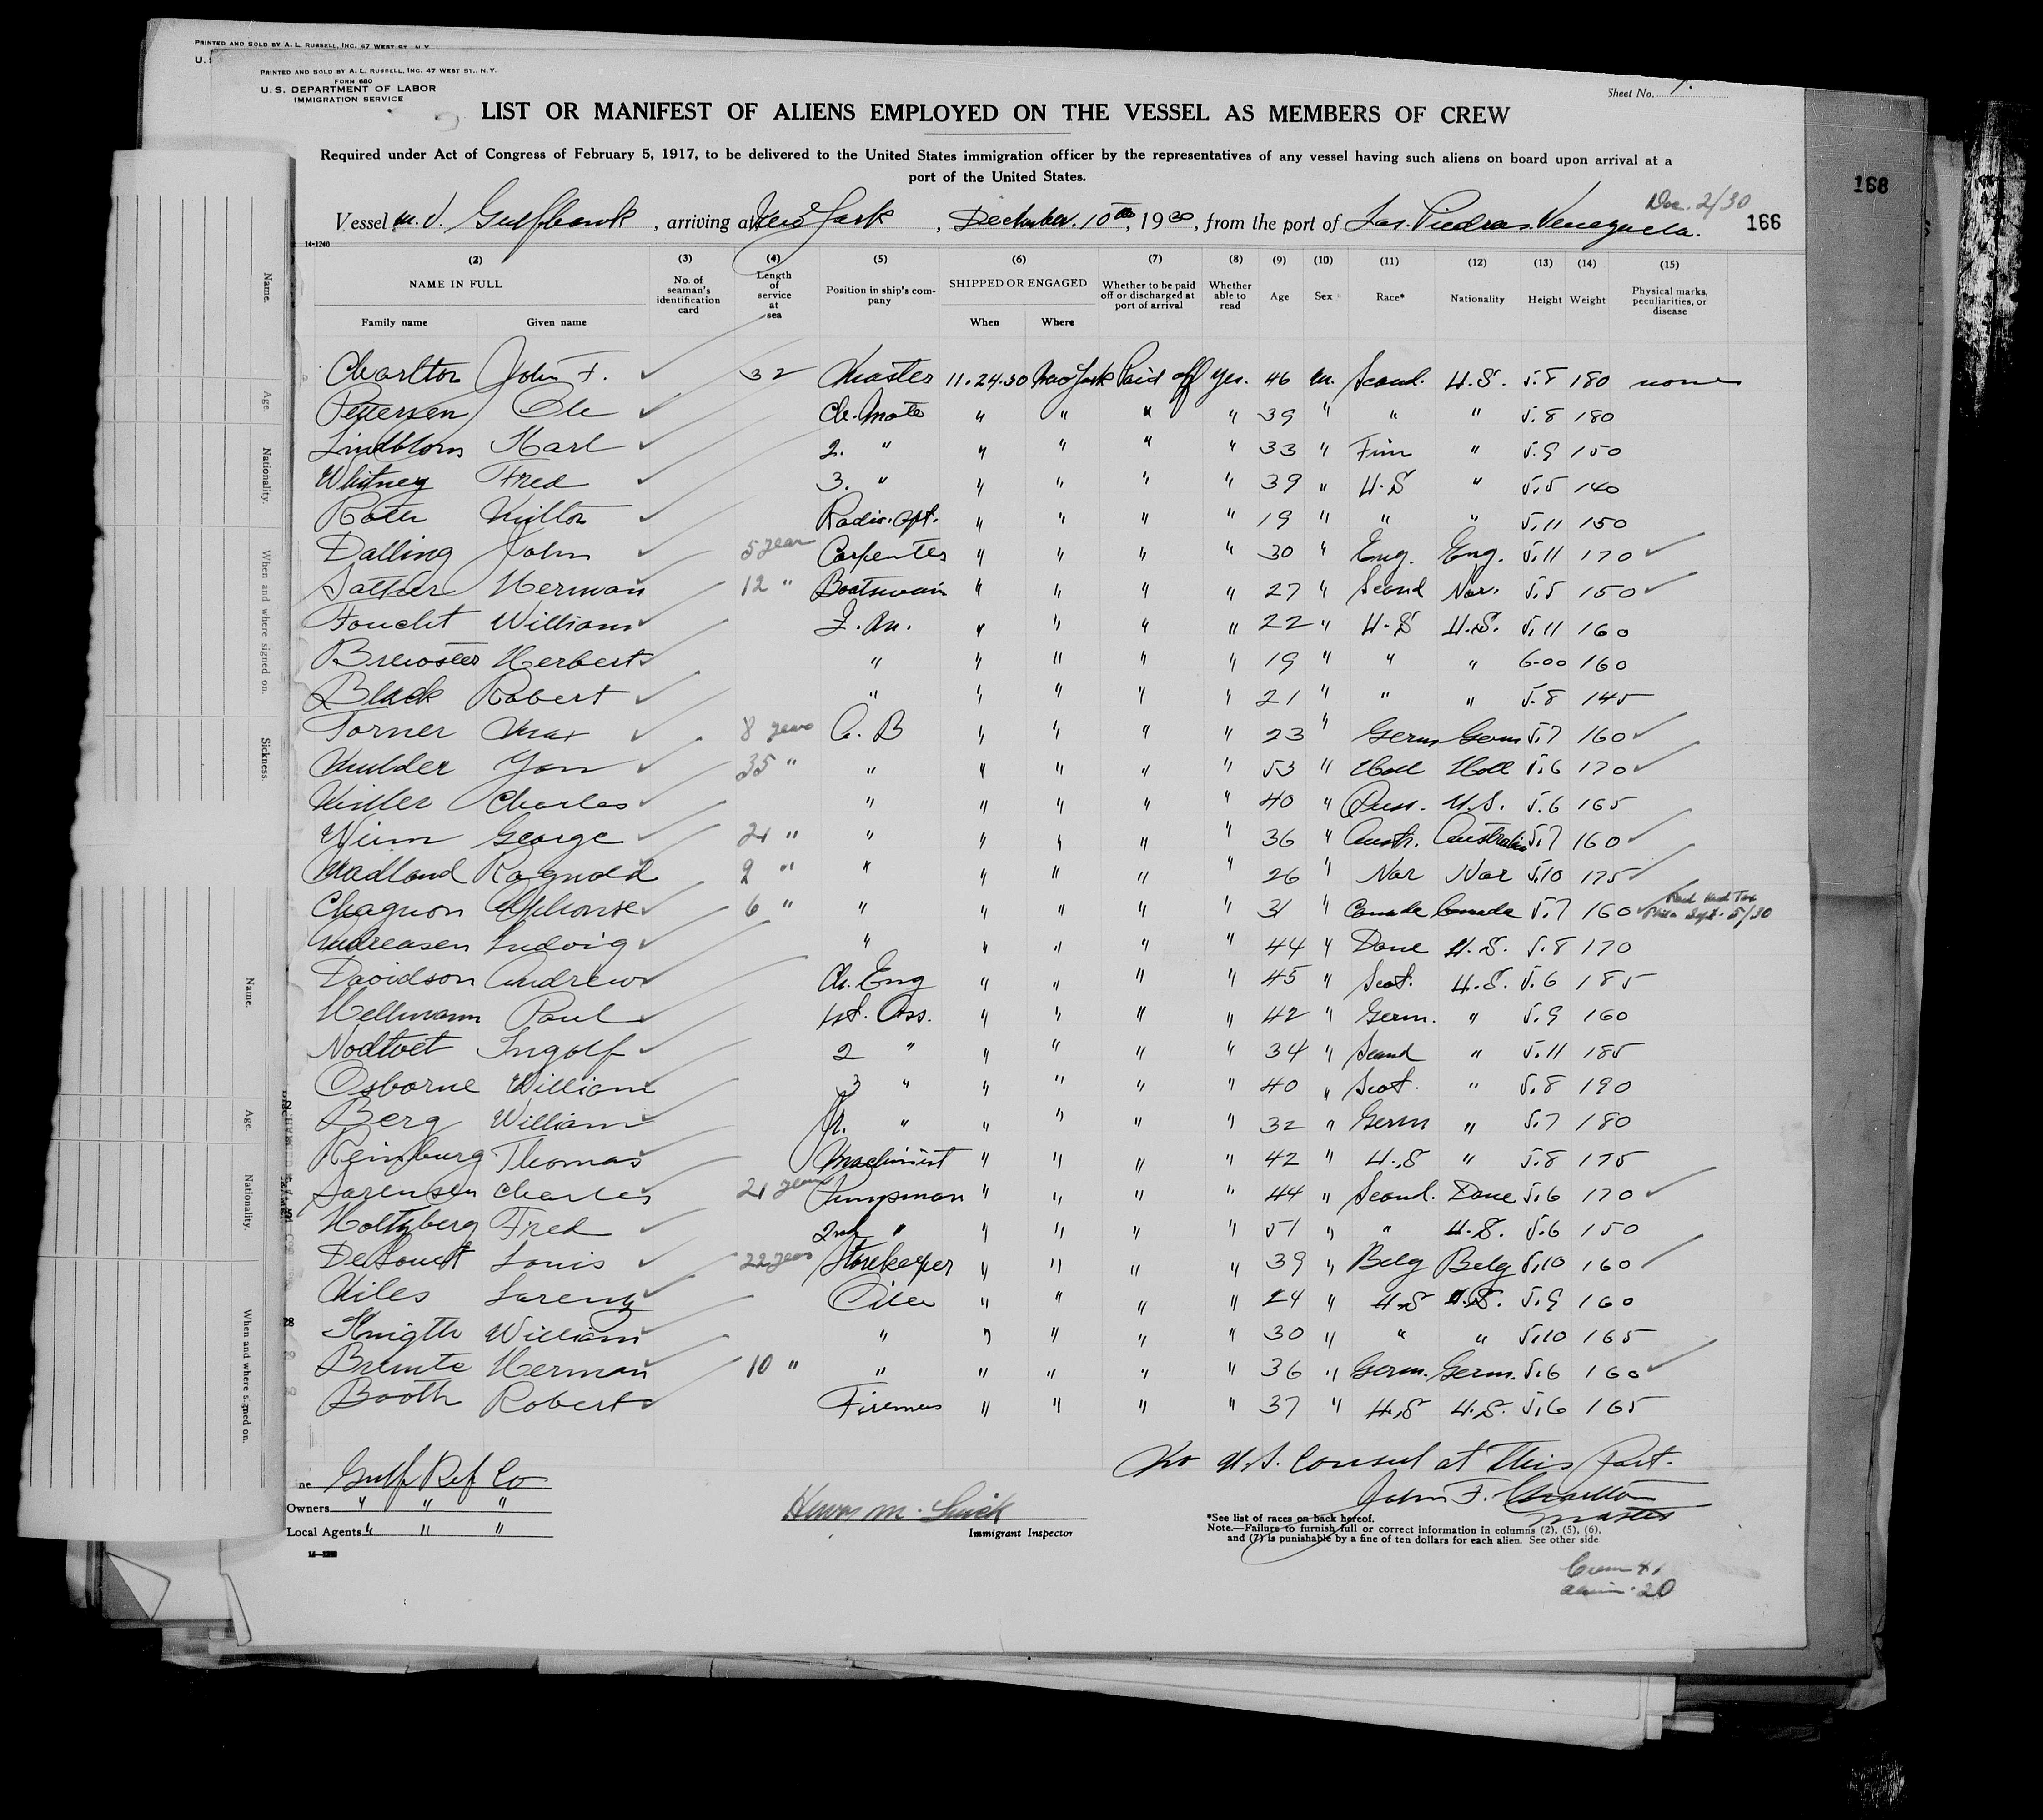 PRINTED AND SOLD BY A. L. RUSSELL, INC. 47 WEST ST. N.Y.
U. S
PRINTED AND SOLD BY A. L. RUSSELL, INC. 47 WEST ST., N. Y.
FORM 680
U. S. DEPARTMENT OF LABOR
IMMIGRATION SERVICE
Sheet No. 1.
LIST OR MANIFEST OF ALIENS EMPLOYED ON THE VESSEL AS MEMBERS OF CREW
Required under Act of Congress of February 5, 1917, to be delivered to the United States immigration officer by the representatives of any vessel having such aliens on board upon arrival at a
port of the United States.
Dec. 2/30
168
Vessel M.V. Gulfhawk, arriving at New York, December. 10th, 1930, from the port of Las Piedras Venezuela. 166
14-1240
(2) (3) (4) (5) (6) (7) (8) (9) (10) (11) (12) (13) (14) (15)
NAME IN FULL No. of seaman's identification card Length of service at sea Position in ship's company SHIPPED OR ENGAGED Whether to be paid off or discharged at port of arrival Whether able to read Age Sex Race* Nationality Height Weight Physical marks, peculiarities, or disease
Family name Given name When Where
Charlton John F. 32 Master 11.24.30 New York Paid off yes. 46 M. Scand. U.S. 5.8 180 none
Pettersen Ole Ch. Mate " " " " 39 " " " 5.8 180
Lindblom Karl 2. " " " " " 33 " Finn " 5.9 150
Whitney Fred 3. " " " " " 39 " U.S " 5.5 140
Roth Milton Radio. Opt. " " " " 19 " " " 5.11 150
Dalling John 5 year Carpenter " " " " 30 " Eng. Eng. 5.11 170
Sather Herman 12 " Boatswain " " " " 27 " Scand Nor. 5.5 150
Foucht William " " " " 22 " U.S U.S. 5.11 160
Brewster Herbert " " " " " 19 " " " 6-00 160
Black Robert " " " " " 21 " " " 5.8 145
Torner Max 8 years A. B " " " " 23 " Germ Germ 5.7 160
Mulder Jan 35 " " " " " " 53 " Holl Holl 5.6 170
Miller Charles " " " " " 40 " Russ. U.S. 5.6 165
Winn George 21 " " " " " " 36 " Austr. Australia 5.7 160
Madland Ragnald 9 " " " " " " 26 " Nor Nor 5.10 175
Chagnon Alphonse 6 " " " " " " 31 " Canada Canada 5.7 160 Paid Head Tax Phila Sept. 5/30
Andreasen Ludvig " " " " " 44 " Dane U.S. 5.8 170
Davidson Andrew Ch. Eng " " " " 45 " Scot. U.S. 5.6 185
Hellmann Paul 1st. Ass. " " " " 42 " Germ. " 5.9 160
Nodtvet Ingolf 2 " " " " " 34 " Scand " 5.11 185
Osborne William 3 " " " " " 40 " Scot. " 5.8 190
Berg William Jr. " " " " " 32 " Germ " 5.7 180
Reimburg Thomas Machinist " " " " 42 " U.S " 5.8 175
Sorensen Charles 21 years Pumpman " " " " 44 " Scand. Dane 5.6 170
Holtzberg Fred 2nd " " " " " 51 " " U.S. 5.6 150
Louis 22 years Storekeeper " " " " 39 " Belg Belg 5.10 160
Miles Lorenz Oiler " " " " 24 " U.S U.S. 5.9 160
Knigth William " " " " " 30 " " " 5.10 165
Bremte Herman 10 " " " " " " 36 " Germ. Germ. 5.6 160
Booth Robert Fireman " " " " 37 " U.S U.S. 5.6 165
No U.S. Consul at This Port.
John F. Charlton
Master
ne Gulf Ref Co
Owners " " "
Local Agents " " "
14-1240
Henry M.
Immigrant Inspector
*See list of races on back hereof.
Note.—Failure to furnish full or correct information in columns (2), (5), (6),
and (7) is punishable by a fine of ten dollars for each alien. See other side
Crew 41
Aliens 20
Name.
Age.
Nationality.
When and where signed on.
Sickness.
Name.
Age.
Nationality.
When and where signed on.
28
29
30